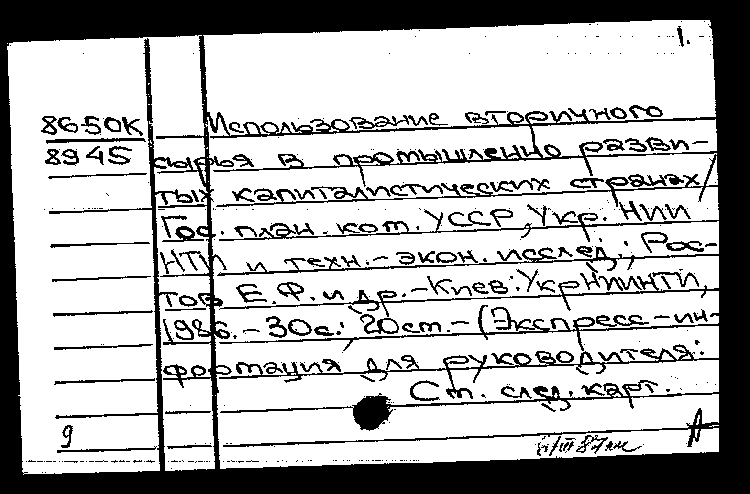 1.
86-50К
8945
Использование вторичного
сырья в промышленно разви-
тых капиталистических странах/
Гос. план. ком. УССР, Укр. НИИ
НТИ и техн.-экон. исслед.; Рос-
тов Е.Ф. и др.-Киев: УкрНИИНТИ,
1986.-30с.; 20см.-(Экспресс-ин-
формация для руководителя:
См. след. карт.
9
А